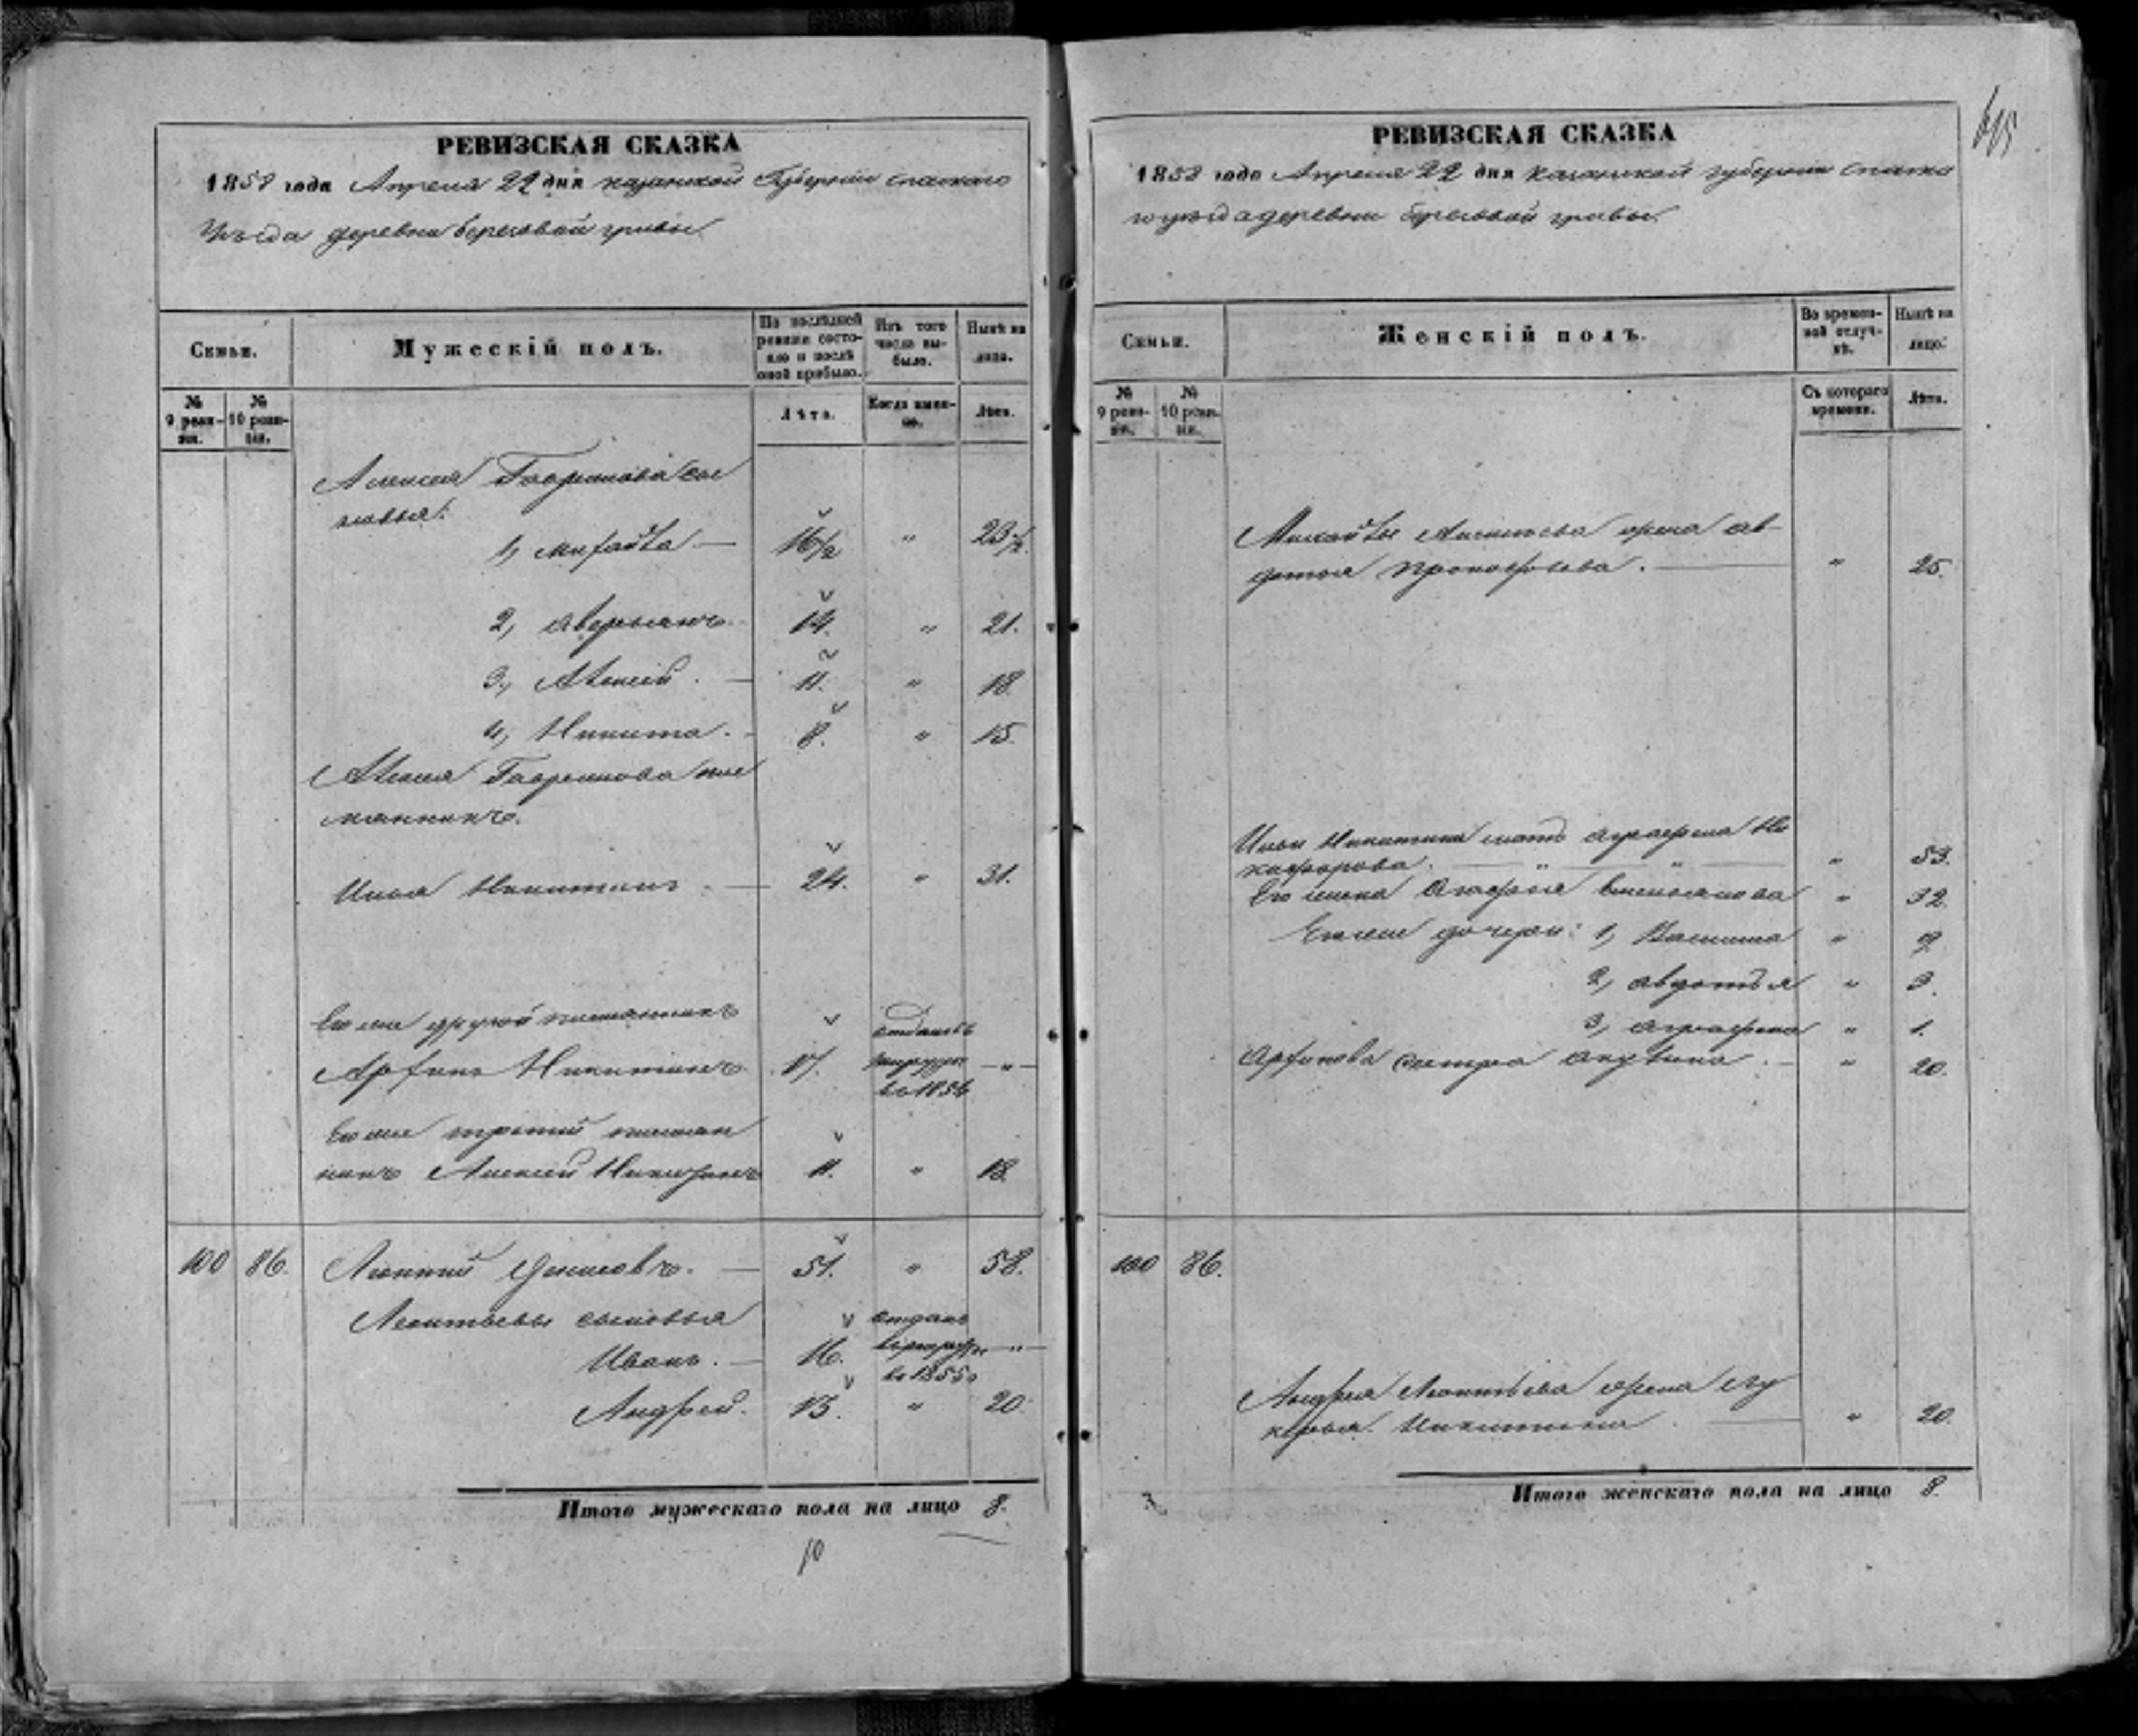 РЕВИЗСКАЯ СКАЗКА
1858 года Апреля 22 дня казанской Губернии спаскаго
Уезда деревни береговой гривы
Семьи.
Мужескій полъ.
По послѣдней ревизіи состояло и послѣ оной прибыло.
Изъ того числа выбыло.
Нынѣ на лицо.
№ 9 ревизіи.
№ 10 ревизіи.
Лѣта.
Когда именно.
Лѣта.
Алексея Гаврилова сы
новья:
1, михайла — 16½ " 23½.
2, аверьянъ. 14. " 21.
3, Алексей. — 11. " 18.
4, Никита. - 8. " 15.
Алексея Гаврилова пле
мянникъ.
Илья Никитинъ. — 24. " 31.
Его же другой племянникъ
Архипъ Никитинъ 17. — " —
во 1854
Его же третий племян
никъ Алексей Никитинъ 11. " 18.
100 86. Леонтий — 51. " 58.
Леонтьевы сыновья отданъ
Иванъ. — 16. в рекруты — " —
во 1855
Андрей. 13. " 20.
Итого мужескаго пола на лицо 8.
10
РЕВИЗСКАЯ СКАЗКА
1858 года Апреля 22 дня казанской губернии спаска
го уезда деревни береговой гривы.
Семьи.
Женскій полъ.
Во временной отлучкѣ.
Нынѣ на лицо.
№ 9 ревизіи.
№ 10 ревизіи.
Съ котораго времени.
Лѣта.
Михайлы Алексеева жена ав-
дотья Прокофьева. — " 25.
Ильи Никитина мать аграфена Ни
кифорова. — " — " — " 53.
Его жена Агафья Емельянова " 32.
Его же дочери: 1, " 9.
2, авдотья " 3.
3, аграфена " 1.
Архипова сестра акулина. - " 20.
100 86.
Андрея Леонтьева жена лу
керья Никитина. — " 20.
Итого женскаго пола на лицо 8.